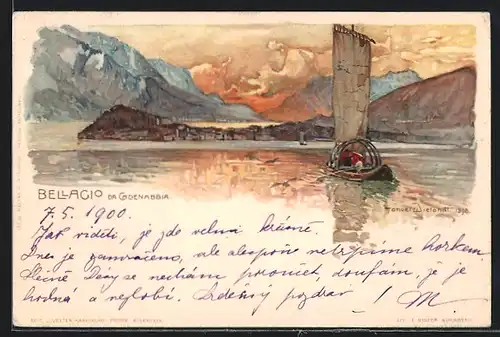 BELLAGIO DA CADENABBIA
Manuel Wielandt 1898.
7.5. 1900.
Jak viděti, je zde velmi krásně.
Dnes je zamračeno, ale alespoň netrpíme horkem.
Slečně Dásy se nechám poroučet, doufám, že je
hodná a nezlobí. Srdečný pozdrav ! M